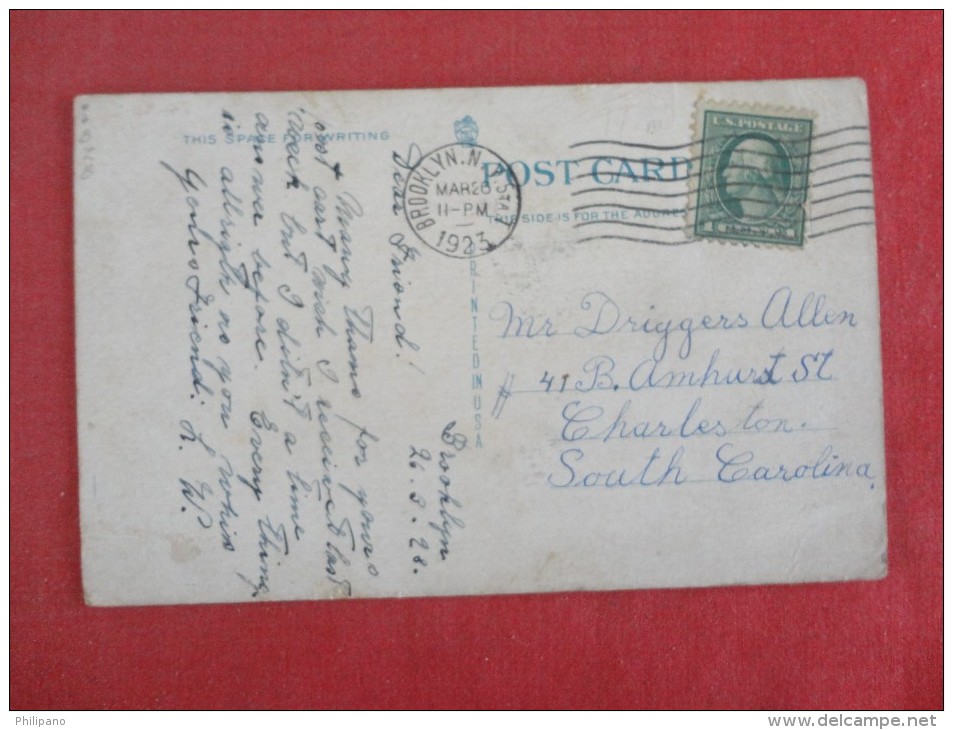 THIS SPACE FOR WRITING
POST CARD
THIS SIDE IS FOR THE ADDRESS
PRINTED IN USA
BROOKLYN, N.Y. STA.
MAR 26
11-PM
1923
U.S. POSTAGE
Brooklyn
26. 3. 23.
Dear Friend!
Many Thanks for yours
post cart wish I received last
week but I ditn't a time
answer before. Every thing
is allright
Yours Friend: L. W.
Mr Driggers Allen
# 41 B. Amhurst St
Charleston.
South Carolina.
Philipano
www.delcampe.net